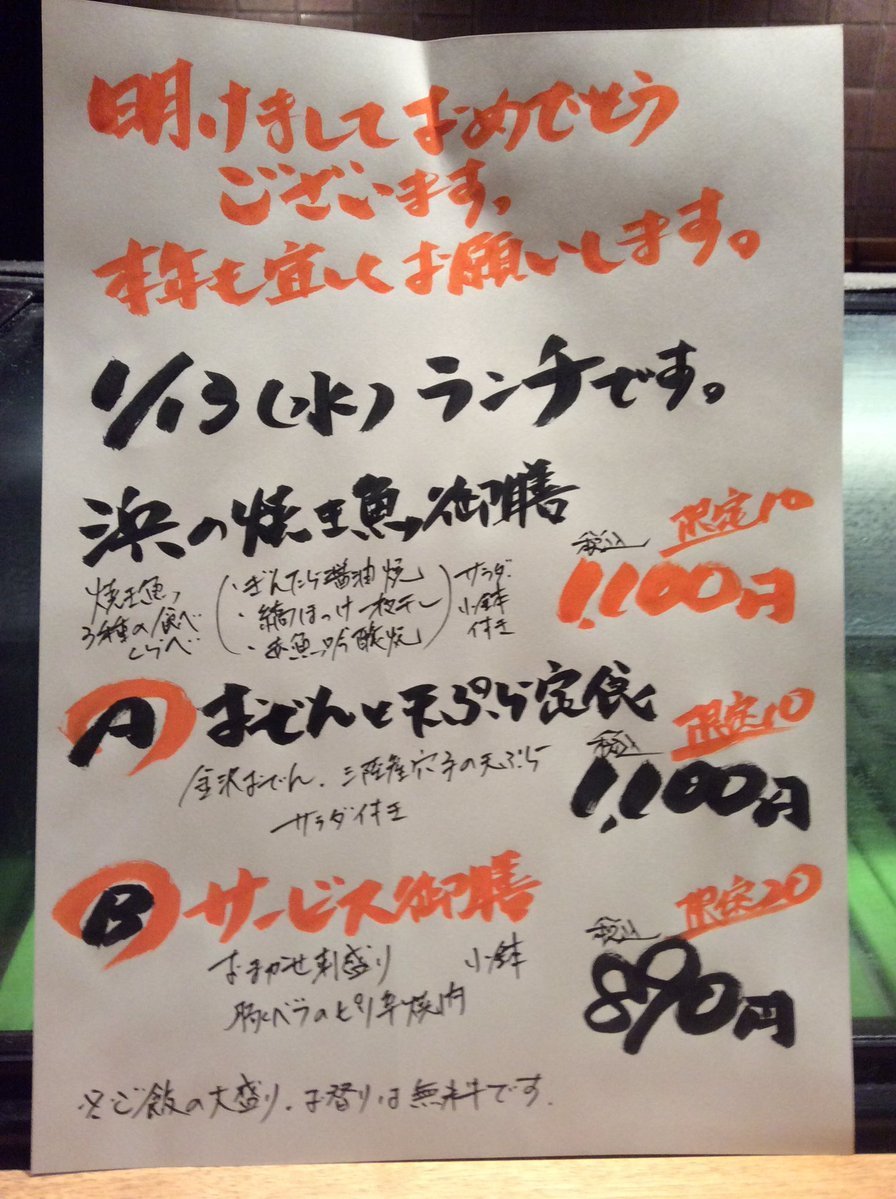 明けましておめでとう
ございます。
本年も宜しくお願いします。
1/13(水)ランチです。
浜の焼き魚御膳
限定10
税込
1,100円
焼き魚
3種の食べ
くらべ
・ぎんだら醤油焼
・縞ほっけ一枚干し
・赤魚吟醸焼
サラダ
小鉢
付き
A おでんと天ぷら定食
限定10
税込
1,100円
金沢おでん、三陸産穴子の天ぷら
サラダ付き
B サービス御膳
限定20
税込
890円
おまかせ刺盛り 小鉢
豚バラのピリ辛焼肉
※ご飯の大盛り、お替りは無料です。